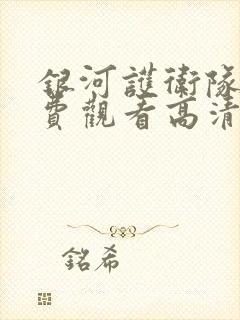 銀河護衛隊
費觀看高清
銘希